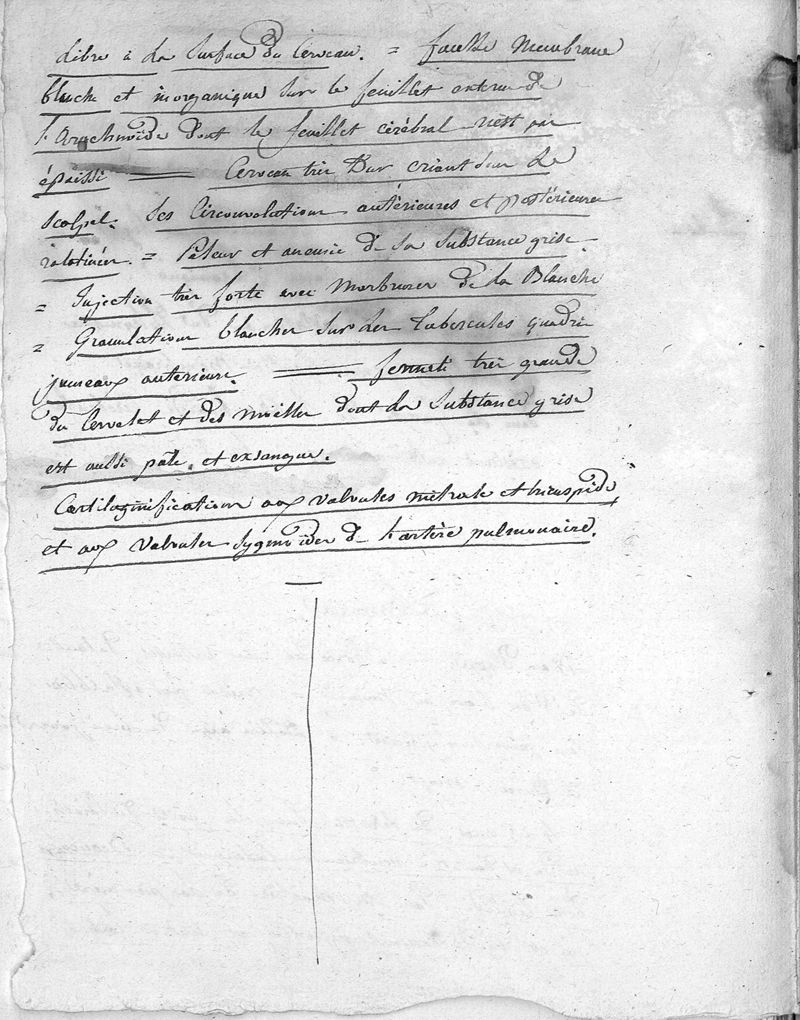 libre à la surface du cerveau. = fausse membrane
blanche et inorganique sur le feuillet externe de
l'arachnoïde dont le feuillet cérébral n'est pas
épaissi == Cerveau très dur criant sous le
scalpel. Ses circonvolutions antérieures et postérieures
ratatinées. = Pâleur et anémie de sa substance grise.
= Injection très forte avec marbrures de la Blanche
= Granulations blanches sur les tubercules quadri
jumeaux antérieurs. == fermeté très grande
du cervelet et des moëlles dont la substance grise
est aussi pâle et exsangue.
Cartilaginifications aux valvules mitrale et tricuspide
et aux valvules sygmoïdes de l'artère pulmonaire.